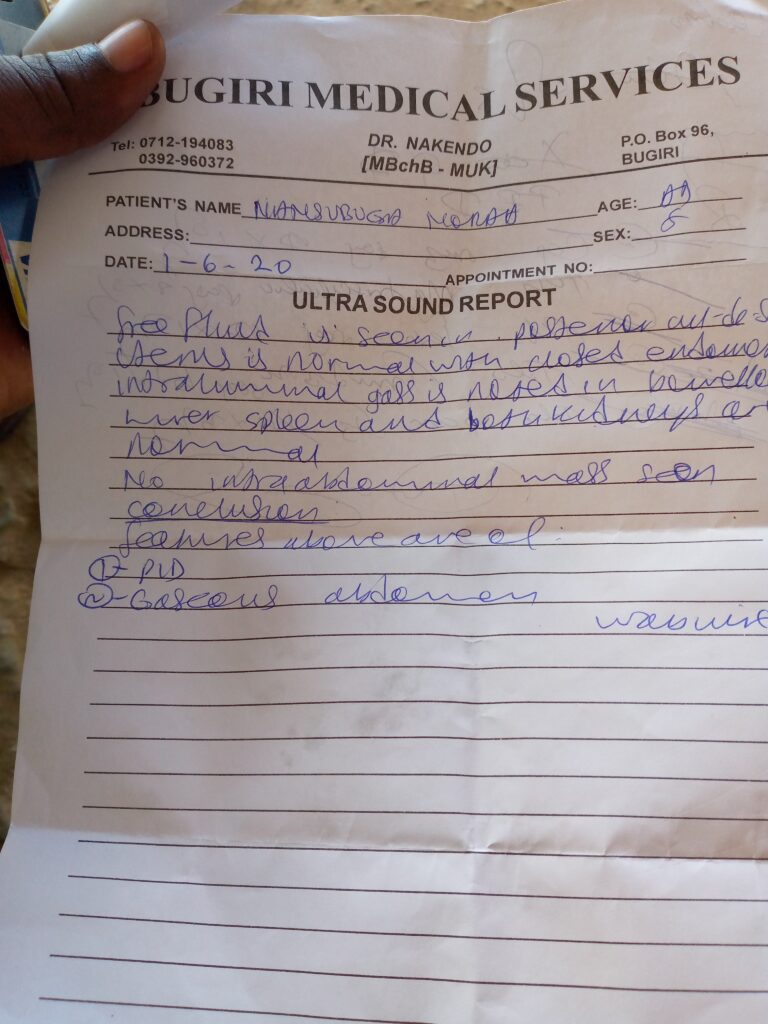 BUGIRI MEDICAL SERVICES
Tel: 0712-194083 DR. NAKENDO P.O. Box 96,
0392-960372 [MBchB - MUK] BUGIRI
PATIENT'S NAME NAMSUBUGA AGE: AA
ADDRESS: SEX:
DATE: 1-6-20 APPOINTMENT NO:
ULTRA SOUND REPORT
free fluid is seen in posterior cul-de-s
uterus is normal with closed endom
intraluminal gass is noted in
liver spleen and both kidneys ar
normal
No intraabdominal mass seen
conclusion
features above are of:
1- PID
2- Gaseous abdomen